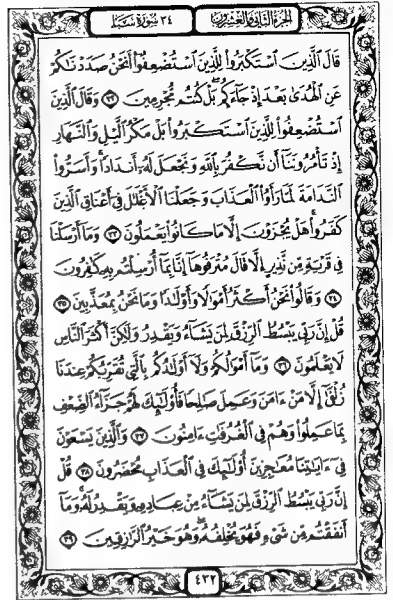 الجزء الثاني والعشرون
٣٤ سورة سبإ
قَالَ ٱلَّذِينَ ٱسْتَكْبَرُوا۟ لِلَّذِينَ ٱسْتُضْعِفُوٓا۟ أَنَحْنُ صَدَدْنَٰكُمْ
عَنِ ٱلْهُدَىٰ بَعْدَ إِذْ جَآءَكُم بَلْ كُنتُم مُّجْرِمِينَ ٣٢ وَقَالَ ٱلَّذِينَ
ٱسْتُضْعِفُوا۟ لِلَّذِينَ ٱسْتَكْبَرُوا۟ بَلْ مَكْرُ ٱلَّيْلِ وَٱلنَّهَارِ
إِذْ تَأْمُرُونَنَآ أَن نَّكْفُرَ بِٱللَّهِ وَنَجْعَلَ لَهُۥٓ أَندَادًا وَأَسَرُّوا۟
ٱلنَّدَامَةَ لَمَّا رَأَوُا۟ ٱلْعَذَابَ وَجَعَلْنَا ٱلْأَغْلَٰلَ فِىٓ أَعْنَاقِ ٱلَّذِينَ
كَفَرُوا۟ هَلْ يُجْزَوْنَ إِلَّا مَا كَانُوا۟ يَعْمَلُونَ ٣٣ وَمَآ أَرْسَلْنَا
فِى قَرْيَةٍ مِّن نَّذِيرٍ إِلَّا قَالَ مُتْرَفُوهَآ إِنَّا بِمَآ أُرْسِلْتُم بِهِۦ كَٰفِرُونَ
٣٤ وَقَالُوا۟ نَحْنُ أَكْثَرُ أَمْوَٰلًا وَأَوْلَٰدًا وَمَا نَحْنُ بِمُعَذَّبِينَ ٣٥
قُلْ إِنَّ رَبِّى يَبْسُطُ ٱلرِّزْقَ لِمَن يَشَآءُ وَيَقْدِرُ وَلَٰكِنَّ أَكْثَرَ ٱلنَّاسِ
لَا يَعْلَمُونَ ٣٦ وَمَآ أَمْوَٰلُكُمْ وَلَآ أَوْلَٰدُكُم بِٱلَّتِى تُقَرِّبُكُمْ عِندَنَا
زُلْفَىٰٓ إِلَّا مَنْ ءَامَنَ وَعَمِلَ صَٰلِحًا فَأُو۟لَٰٓئِكَ لَهُمْ جَزَآءُ ٱلضِّعْفِ
بِمَا عَمِلُوا۟ وَهُمْ فِى ٱلْغُرُفَٰتِ ءَامِنُونَ ٣٧ وَٱلَّذِينَ يَسْعَوْنَ
فِىٓ ءَايَٰتِنَا مُعَٰجِزِينَ أُو۟لَٰٓئِكَ فِى ٱلْعَذَابِ مُحْضَرُونَ ٣٨ قُلْ
إِنَّ رَبِّى يَبْسُطُ ٱلرِّزْقَ لِمَن يَشَآءُ مِنْ عِبَادِهِۦ وَيَقْدِرُ لَهُۥ وَمَآ
أَنفَقْتُم مِّن شَىْءٍ فَهُوَ يُخْلِفُهُۥ وَهُوَ خَيْرُ ٱلرَّٰزِقِينَ ٣٩
٤٣٢